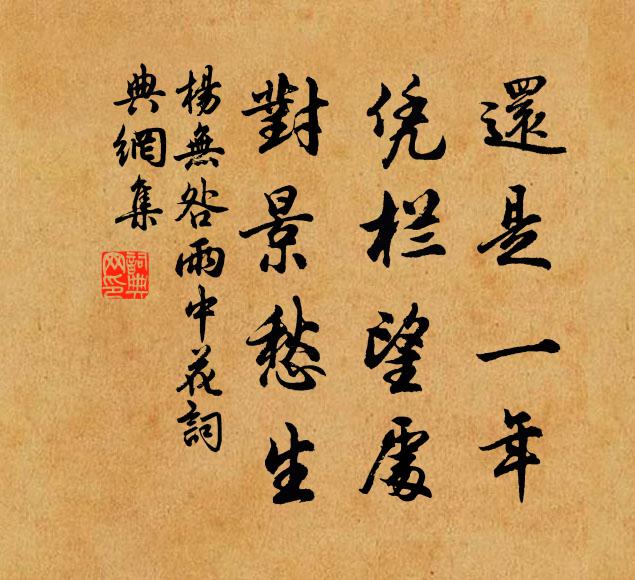 還是一年
凭栏望處
對景愁生
楊無咎雨中花詞
典網集
詞典網印